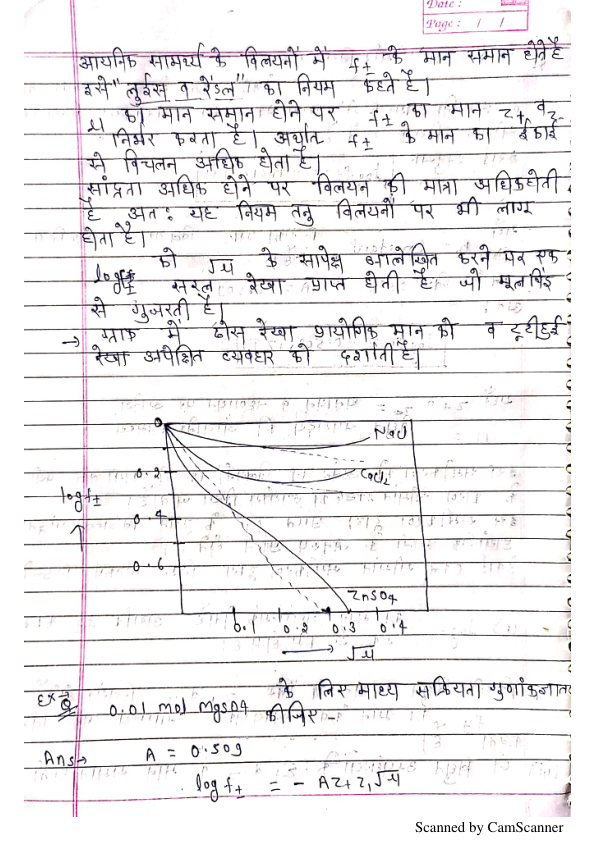 Date :
Page : / /
आयनिक सामर्थ्य के विलयनों में f± के मान समान होते है
इसे "लुईस व रेंडल" का नियम कहते है।
μ का मान समान होने पर f± का मान z+ व z-
निर्भर करता है। अर्थात f± के मान का ईकाई
से विचलन अधिक होता है।
सांद्रता अधिक होने पर विलयन की मात्रा अधिक होती
है अत: यह नियम तनु विलयनों पर भी लागू
होता है।
logf± को √μ के सापेक्ष आलेखित करने पर एक
सरल रेखा प्राप्त होती है जो मूलबिंदु
से गुजरती है।
→ ग्राफ में ठोस रेखा प्रायोगिक मान को व टूटी हुई
रेखा अपेक्षित व्यवहार को दर्शाती है।
0
NaCl
0.2
CaCl2
logf±
0.4
0.6
ZnSO4
0.1 0.2 0.3 0.4
→ √μ
Ex 0.01 mol MgSO4 के लिए माध्य सक्रियता गुणांक ज्ञात
कीजिए -
Ans→ A = 0.509
logf± = - Az+z, √μ
Scanned by CamScanner